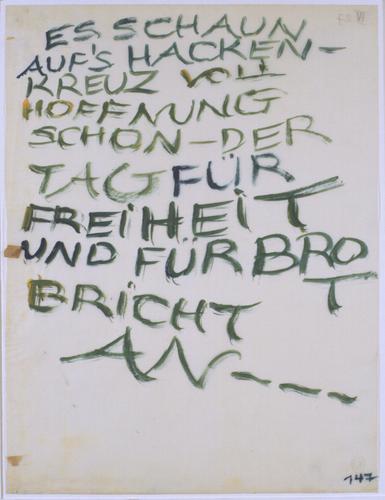 ES SCHAUN
AUF'S HACKEN-
KREUZ VOLL
HOFFNUNG
SCHON-DER
TAG FÜR
FREIHEIT
UND FÜR BRO
T
BRICHT
AN----
147